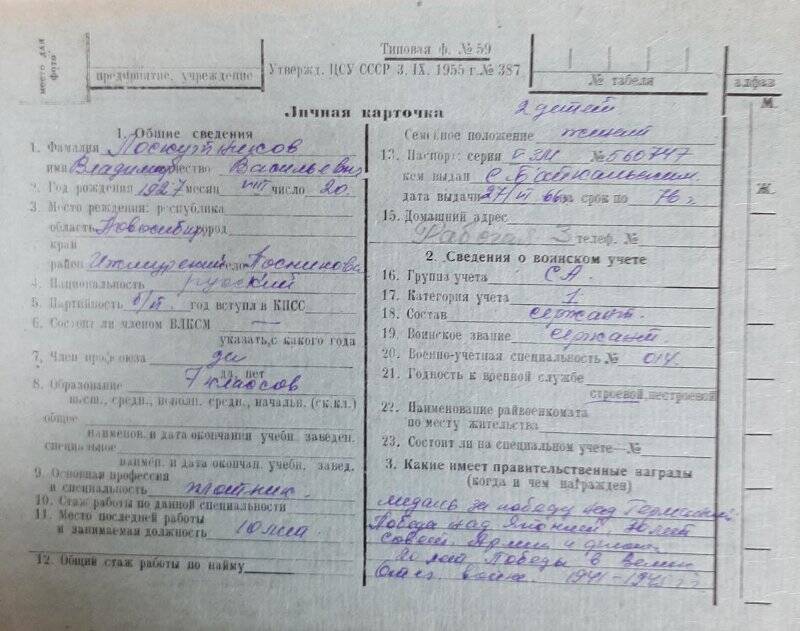 место для фото
Типовая ф. № 59
предприятие, учреждение
Утвержд. ЦСУ СССР 3. IX. 1955 г. № 387
№ табеля
алфав
Личная карточка
М.
Ж.
1. Общие сведения
1. Фамилия Лоскутников
имя Владимир отчество Васильевич
2. Год рождения 1927 месяц VIII число 20
3. Место рождения: республика
область Новосибир город
край
район Ижморский село Постниково
4. Национальность русский
5. Партийность б/п. год вступл в КПСС
6. Состоит ли членом ВЛКСМ —
указать, с какого года
7. Член профсоюза да
да, нет
8. Образование 7 классов
высш., средн., неполн. средн., начальн. (ск. кл.)
общее
наименов. и дата окончания учебн. заведен.
специальное
наимен. и дата окончан. учебн. завед.
9. Основная профессия
и специальность плотник.
10. Стаж работы по данной специальности
11. Место последней работы
и занимаемая должность
12. Общий стаж работы по найму
2 детей
Семейное положение
13. Паспорт: серия № 560747
кем выдан
дата выдачи 27/VI 66 на срок по 76 г
15. Домашний адрес
Рабочая 3 телеф. №
2. Сведения о воинском учете
16. Группа учета СА.
17. Категория учета 1
18. Состав сержант.
19. Воинское звание сержант.
20. Военно-учетная специальность № 014.
21. Годность к военной службе
строевой, нестроевой
22. Наименование райвоенкомата
по месту жительства
23. Состоит ли на специальном учете — №
3. Какие имеет правительственные награды
(когда и чем награжден)
медаль за победу над Германией
Победа над Японией. 30 лет
Совет. Армии и флота.
20 лет Победы в велик
Отеч. войне 1941-1945 гг